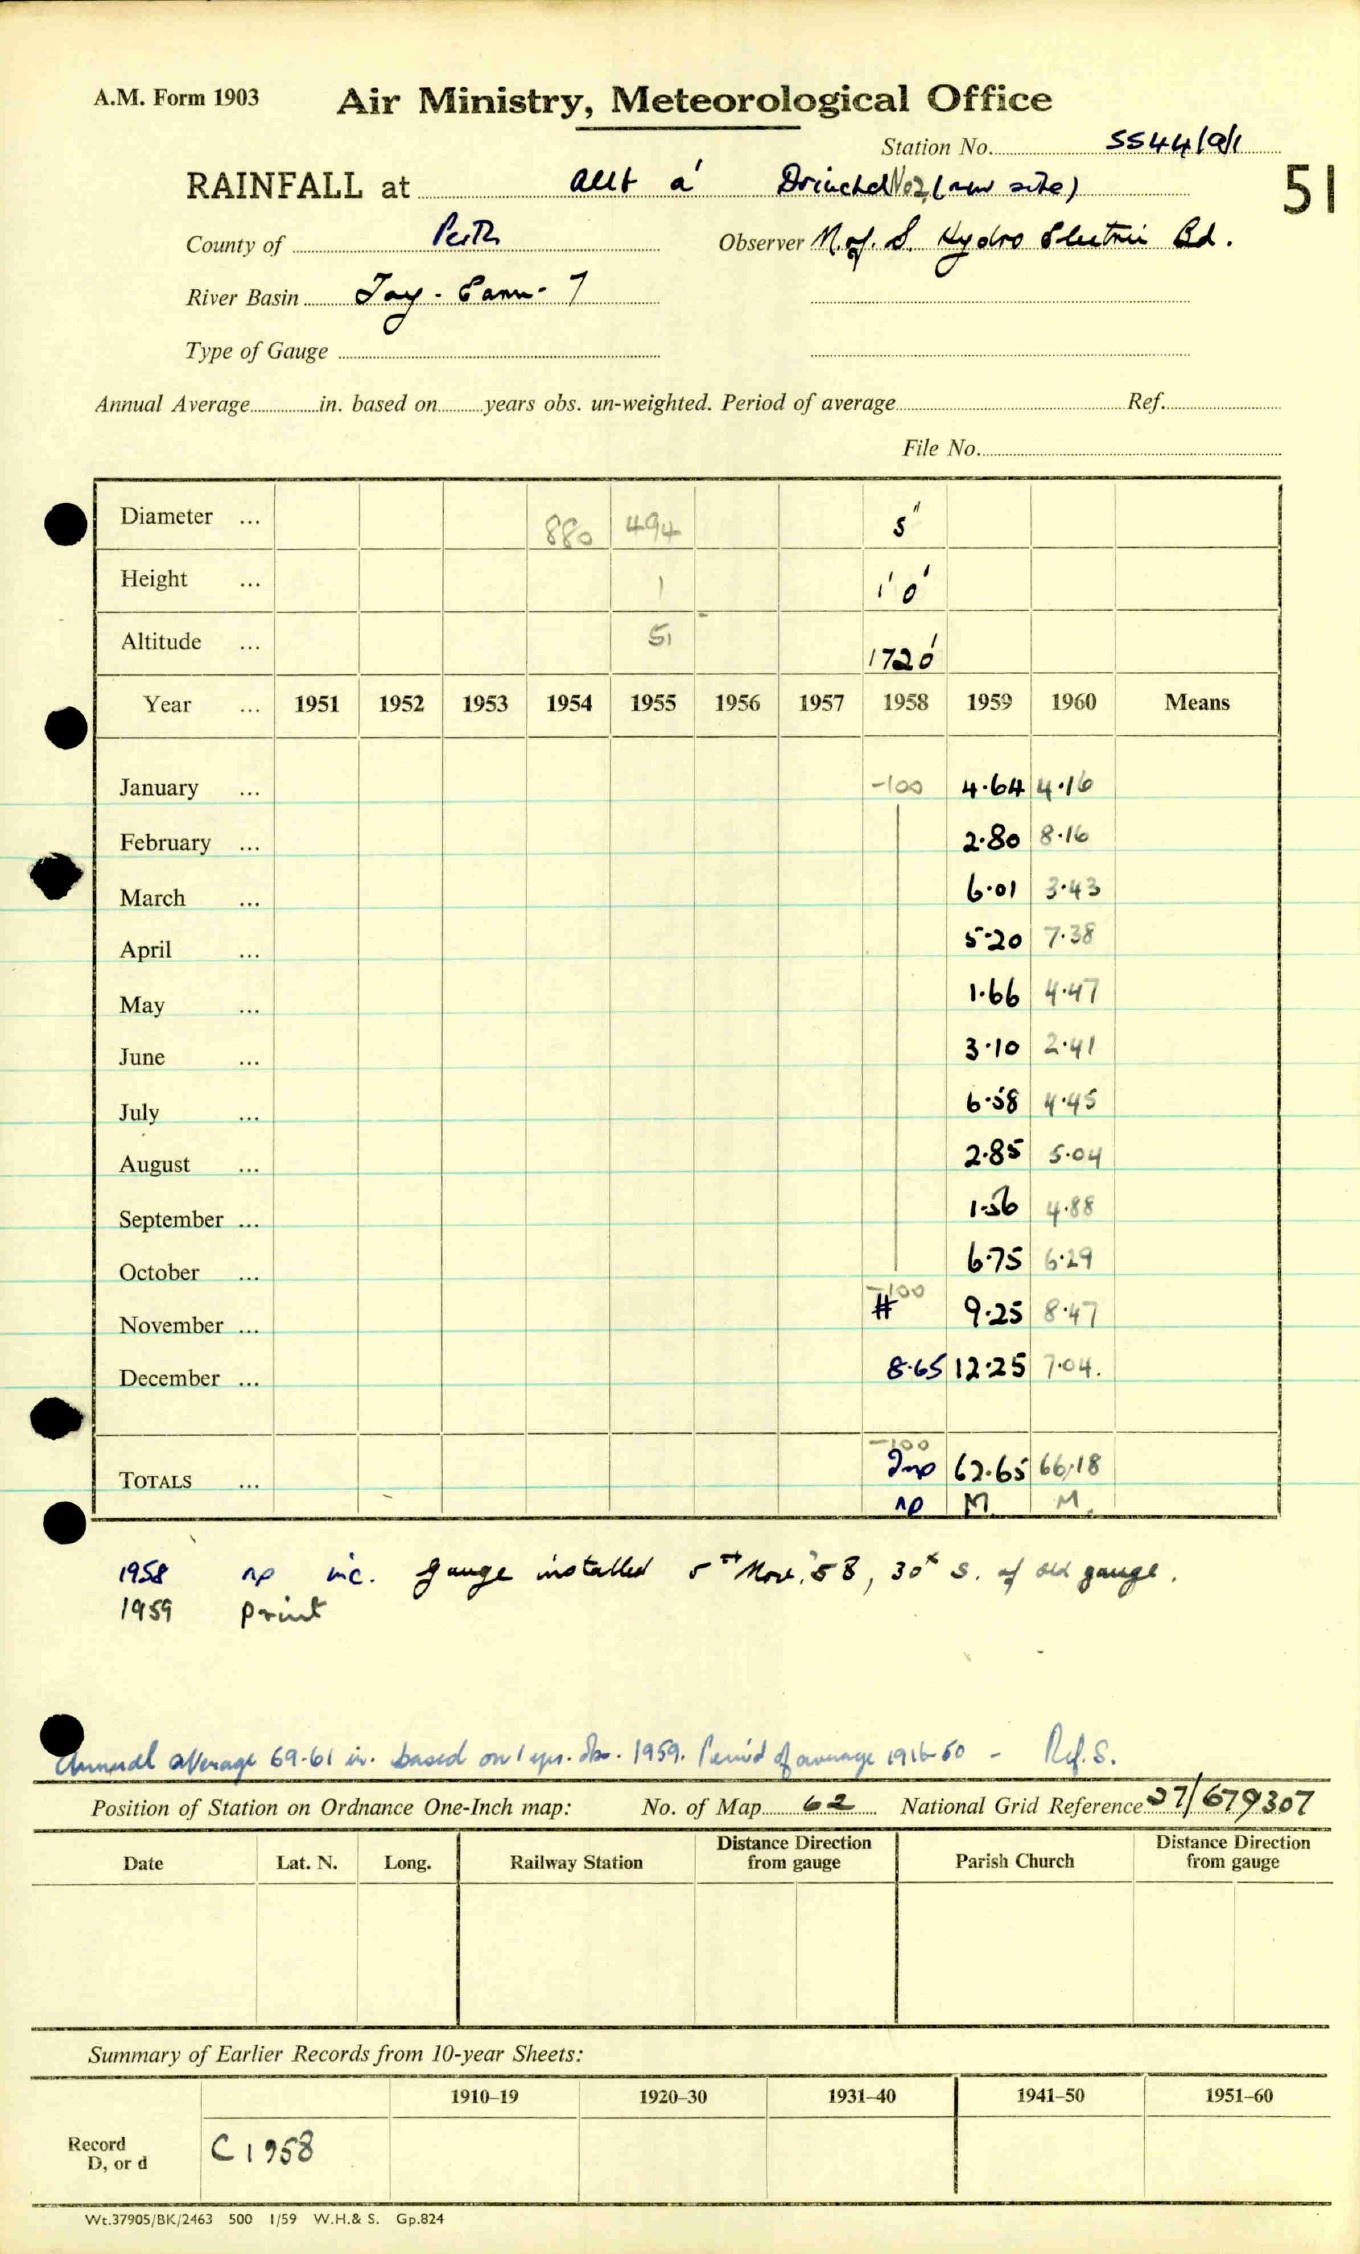 A.M. Form 1903
Air Ministry, Meteorological Office
Station No. 5544/9/1
51
RAINFALL at Allt a' Driechd No 2 (new site)
County of Perth Observer N. of. S. Hydro Electric Bd.
River Basin Tay - Earn - 7
Type of Gauge
Annual Average in. based on years obs. un-weighted. Period of average Ref.
File No.
Diameter ... 880 494 5"
Height ... 1 1' 0"
Altitude ... 51 1720'
Year ... 1951 1952 1953 1954 1955 1956 1957 1958 1959 1960 Means
January ... -100 4.64 4.16
February ... 2.80 8.16
March ... 6.01 3.43
April ... 5.20 7.38
May ... 1.66 4.47
June ... 3.10 2.41
July ... 6.58 4.45
August ... 2.85 5.04
September ... 1.56 4.88
October ... 6.75 6.29
November ... -100 # 9.25 8.47
December ... 8.65 12.25 7.04.
-100
TOTALS ... Inp 62.65 66.18
np M M.
1958 np inc. gauge installed 5th Nov. '58, 30x S. of old gauge.
1959 print
Annual average 69.61 in. based on 1 yrs. obs. 1959. Period of average 1916-50 - Ref. S.
Position of Station on Ordnance One-Inch map: No. of Map 62 National Grid Reference 27/679307
Date Lat. N. Long. Railway Station Distance Direction from gauge Parish Church Distance Direction from gauge
Summary of Earlier Records from 10-year Sheets:
1910–19 1920–30 1931–40 1941–50 1951–60
Record D, or d C 1958
Wt.37905/BK/2463 500 1/59 W.H.& S. Gp.824